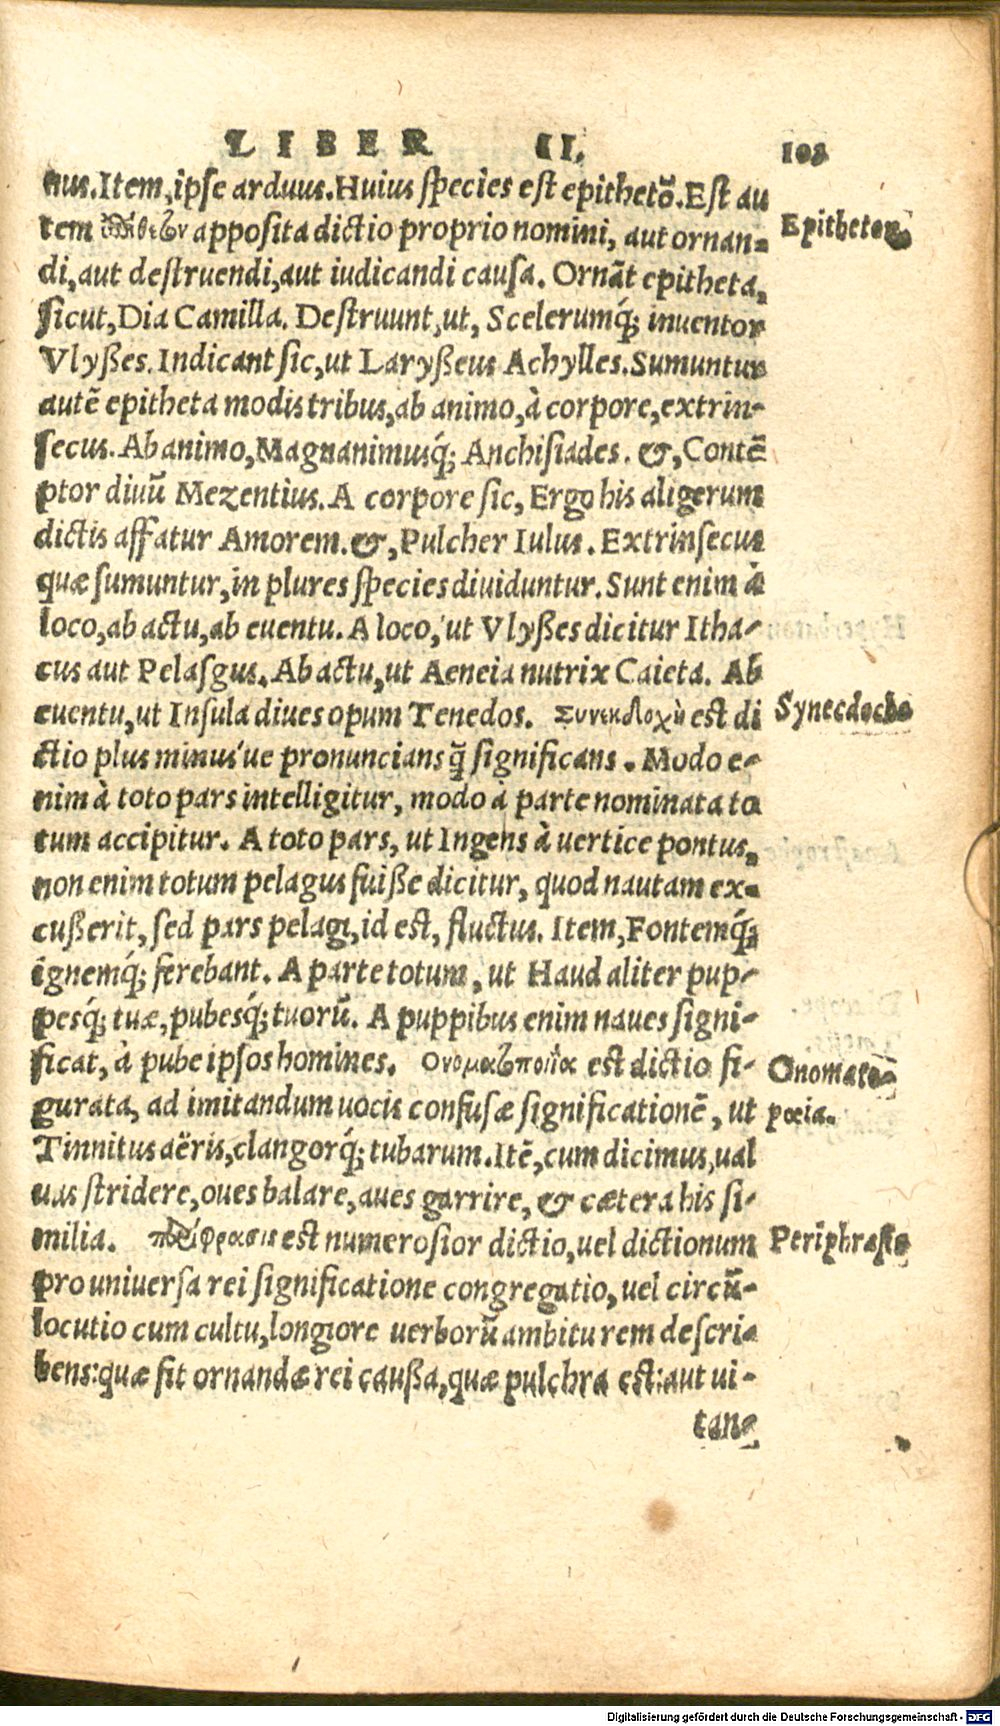 LIBER II. 103
nus. Item, ipse arduus. Huius species est epithetõ. Est au
tem ἐπίθετον apposita dictio proprio nomini, aut ornan-
Epitheton
di, aut destruendi, aut iudicandi causa. Ornãt epitheta,
sicut, Dia Camilla. Destruunt, ut, Scelerumq́; inuentor
Vlyßes. Indicant sic, ut Laryßeus Achylles. Sumuntur
autẽ epitheta modis tribus, ab animo, à corpore, extrin-
secus. Ab animo, Magnanimusq́; Anchisiades. &, Contẽ
ptor diuũ Mezentius. A corpore sic, Ergo his aligerum
dictis affatur Amorem. &, Pulcher Iulus. Extrinsecus
quæ sumuntur, in plures species diuiduntur. Sunt enim à
loco, ab actu, ab euentu. A loco, ut Vlyßes dicitur Itha-
cus aut Pelasgus. Ab actu, ut Aeneia nutrix Caieta. Ab
euentu, ut Insula diues opum Tenedos. Συνεκδοχὴ est di
Synecdoche
ctio plus minus'ue pronuncians q̃ significans. Modo e-
nim à toto pars intelligitur, modo à parte nominata to
tum accipitur. A toto pars, ut Ingens à uertice pontus,
non enim totum pelagus fuiße dicitur, quod nautam ex-
cußerit, sed pars pelagi, id est, fluctus. Item, Fontemq́;
ignemq́; ferebant. A parte totum, ut Haud aliter pup-
pesq́; tuæ, pubesq́; tuorũ. A puppibus enim naues signi-
ficat, à pube ipsos homines. Ονοματοποιΐα est dictio fi-
Onomato-
gurata, ad imitandum uocis confusæ significationẽ, ut
pœia.
Tinnitus aëris, clangorq́; tubarum. Itẽ, cum dicimus, ual
uas stridere, oues balare, aues garrire, & cætera his si-
milia. περίφρασις est numerosior dictio, uel dictionum
Periphrasis
pro uniuersa rei significatione congregatio, uel circũ-
locutio cum cultu, longiore uerborũ ambitu rem descri-
bens: quæ fit ornandæ rei caußa, quæ pulchra est: aut ui-
tan-
Digitalisierung gefördert durch die Deutsche Forschungsgemeinschaft - DFG